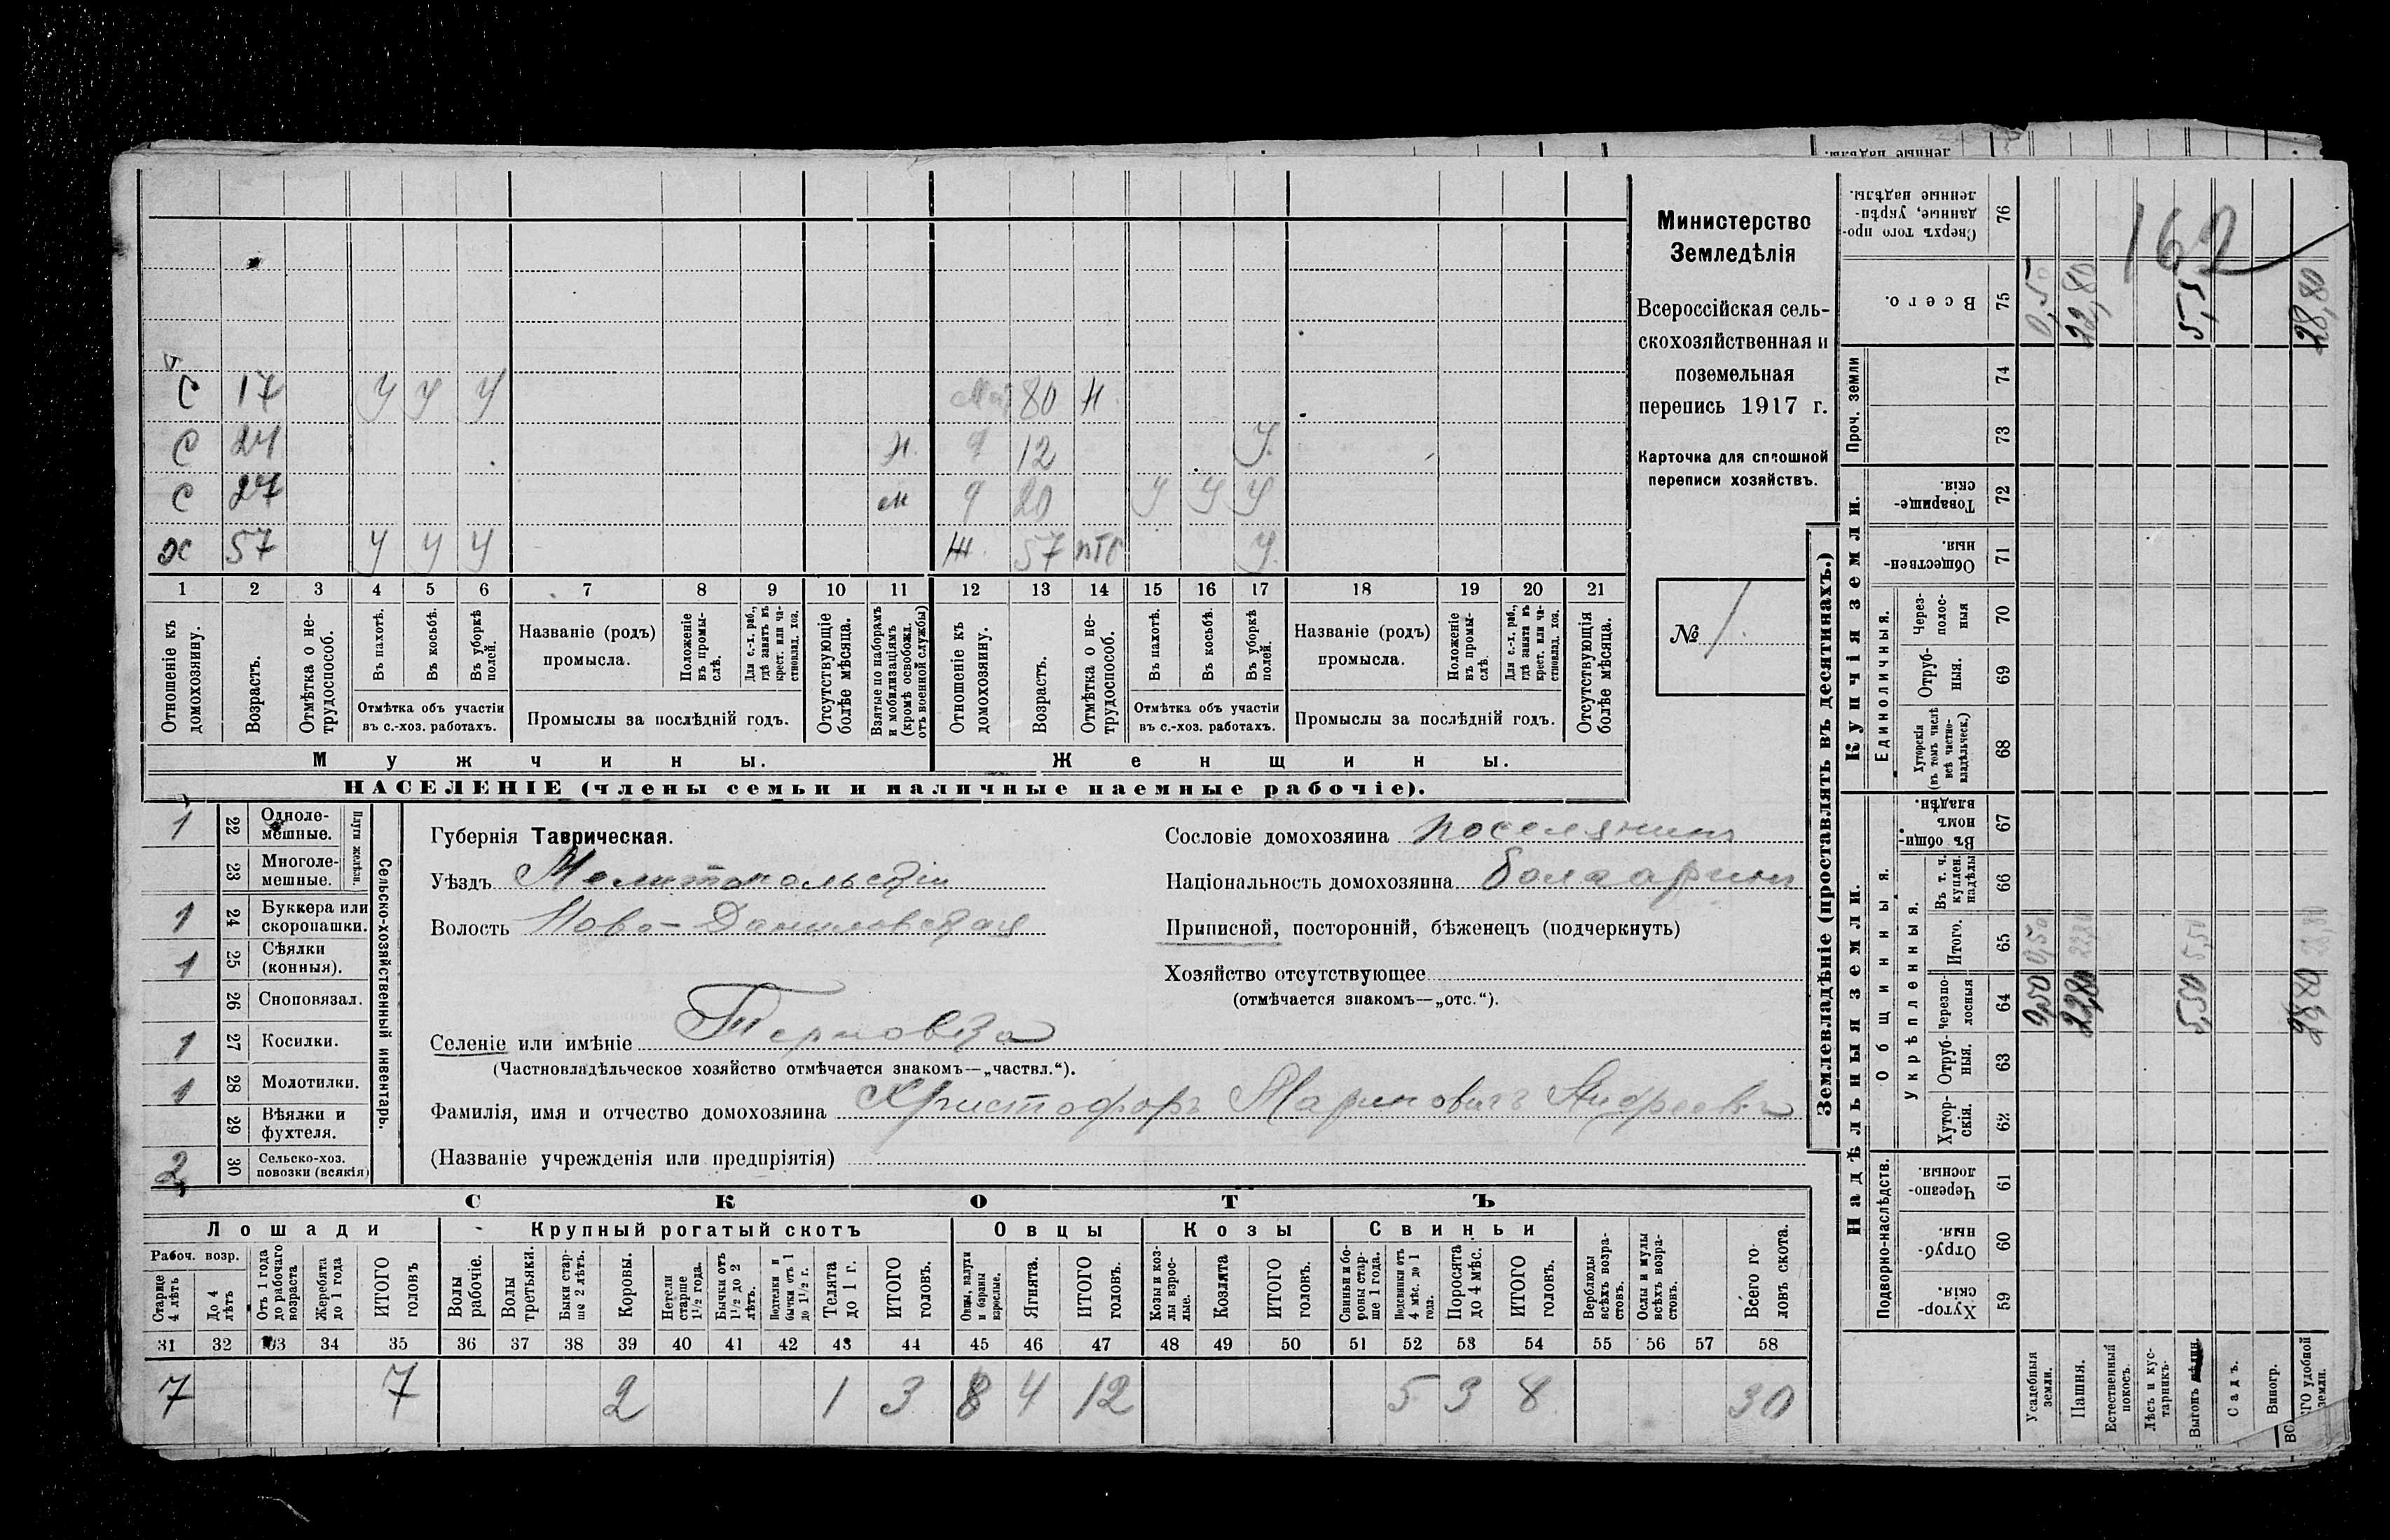 162
Министерство
Земледѣлія
Всероссійская сель-
скохозяйственная и
поземельная
перепись 1917 г.
Карточка для сплошной
переписи хозяйствъ.
№ 1.
С 17 У У У 80 Н.
С 24 Н. 12 У.
С 27 м 20 У У У
Х 57 У У У Ж. 57 У.
1 2 3 4 5 6 7 8 9 10 11 12 13 14 15 16 17 18 19 20 21
Отношеніе къ домохозяину.
Возрастъ.
Отмѣтка о не-трудоспособ.
Въ пахотѣ.
Въ косьбѣ.
Въ уборкѣ полей.
Отмѣтка объ участіи въ с.-хоз. работахъ.
Названіе (родъ) промысла.
Положеніе въ промы-слѣ.
Для с.-х. раб., гдѣ занятъ въ крест. или ча-стновлад. хоз.
Промыслы за послѣдній годъ.
Отсутствующіе болѣе мѣсяца.
Взятые по наборамъ и мобилизаціямъ (кромѣ освобожд. отъ военной службы)
Отношеніе къ домохозяину.
Возрастъ.
Отмѣтка о не-трудоспособ.
Въ пахотѣ.
Въ косьбѣ.
Въ уборкѣ полей.
Отмѣтка объ участіи въ с.-хоз. работахъ.
Названіе (родъ) промысла.
Положеніе въ промы-слѣ.
Для с.-х. раб., гдѣ занята въ крест. или ча-стновлад. хоз.
Промыслы за послѣдній годъ.
Отсутствующія болѣе мѣсяца.
Мужчины. Женщины.
НАСЕЛЕНІЕ (члены семьи и наличные наемные рабочіе).
1 22 Одноле-мешные.
23 Многоле-мешные.
Плуги желѣзн.
1 24 Буккера или скоропашки.
1 25 Сѣялки (конныя).
26 Сноповязал.
1 27 Косилки.
1 28 Молотилки.
29 Вѣялки и фухтеля.
2 30 Сельско-хоз. повозки (всякія)
Сельско-хозяйственный инвентарь.
Губернія Таврическая.
Уѣздъ Мелитопольскій
Волость Ново-Даниловская
Селеніе или имѣніе Терновка
(Частновладѣльческое хозяйство отмѣчается знакомъ—„частвл.“).
Фамилія, имя и отчество домохозяина Христофоръ Мариновичъ Андреевъ
(Названіе учрежденія или предпріятія)
Сословіе домохозяина поселянинъ
Національность домохозяина болгаринъ
Приписной, посторонній, бѣженецъ (подчеркнуть)
Хозяйство отсутствующее
(отмѣчается знакомъ—„отс.“).
СКОТЪ
Лошади Крупный рогатый скотъ Овцы Козы Свиньи
Рабоч. возр.
Старше 4 лѣтъ
До 4 лѣтъ
Отъ 1 года до рабочаго возраста
Жеребята до 1 года
ИТОГО головъ
Волы рабочіе.
Волы третьяки.
Быки стар-ше 2 лѣтъ.
Коровы.
Нетели старше 1 1/2 года.
Бычки отъ 1 1/2 до 2 лѣтъ.
Подтелки и бычки отъ 1 до 1 1/2 г.
Телята до 1 г.
ИТОГО головъ.
Овцы, валухи и бараны взрослые.
Ягнята.
ИТОГО головъ.
Козы и коз-лы взрос-лые.
Козлята
ИТОГО головъ.
Свиньи и бо-ровы стар-ше 1 года.
Подсвинки отъ 4 мѣс. до 1 года.
Поросята до 4 мѣс.
ИТОГО головъ.
Верблюды всѣхъ возра-стовъ.
Ослы и мулы всѣхъ возра-стовъ.
Всего го-ловъ скота.
31 32 33 34 35 36 37 38 39 40 41 42 43 44 45 46 47 48 49 50 51 52 53 54 55 56 57 58
7 7 2 1 3 8 4 12 5 3 8 30
Землевладѣніе (проставлять въ десятинахъ.)
Купчія земли.
Надѣльныя земли.
Проч. земли
Единоличныя.
Общинныя.
Укрѣпленныя.
Подворно-наслѣдств.
Сверхъ того про-данные, укрѣп-ленные надѣлы. 76
Всего. 75
74
73
Товарище-скія. 72
Обществен-ныя. 71
Через-полос-ныя 70
Отруб-ныя. 69
Хуторскія (въ томъ числѣ всѣ частно-владѣльческ.) 68
Въ общин-номъ владѣн. 67
Въ т. ч. куплен. надѣлы 66
Итого. 65
Черезпо-лосныя 64
Отруб-ныя. 63
Хутор-скія. 62
Черезпо-лосныя. 61
Отруб-ныя. 60
Хутор-скія. 59
Усадебныя земли. 0,50 0,50 0,50
Пашня. 22,80 22,80 22,80
Естественный покосъ.
Лѣсъ и кус-тарникъ.
Выгонъ 5,50 5,50 5,5
Садъ.
Виногр.
ГО удобной земли. 28,80 28,80 28,80